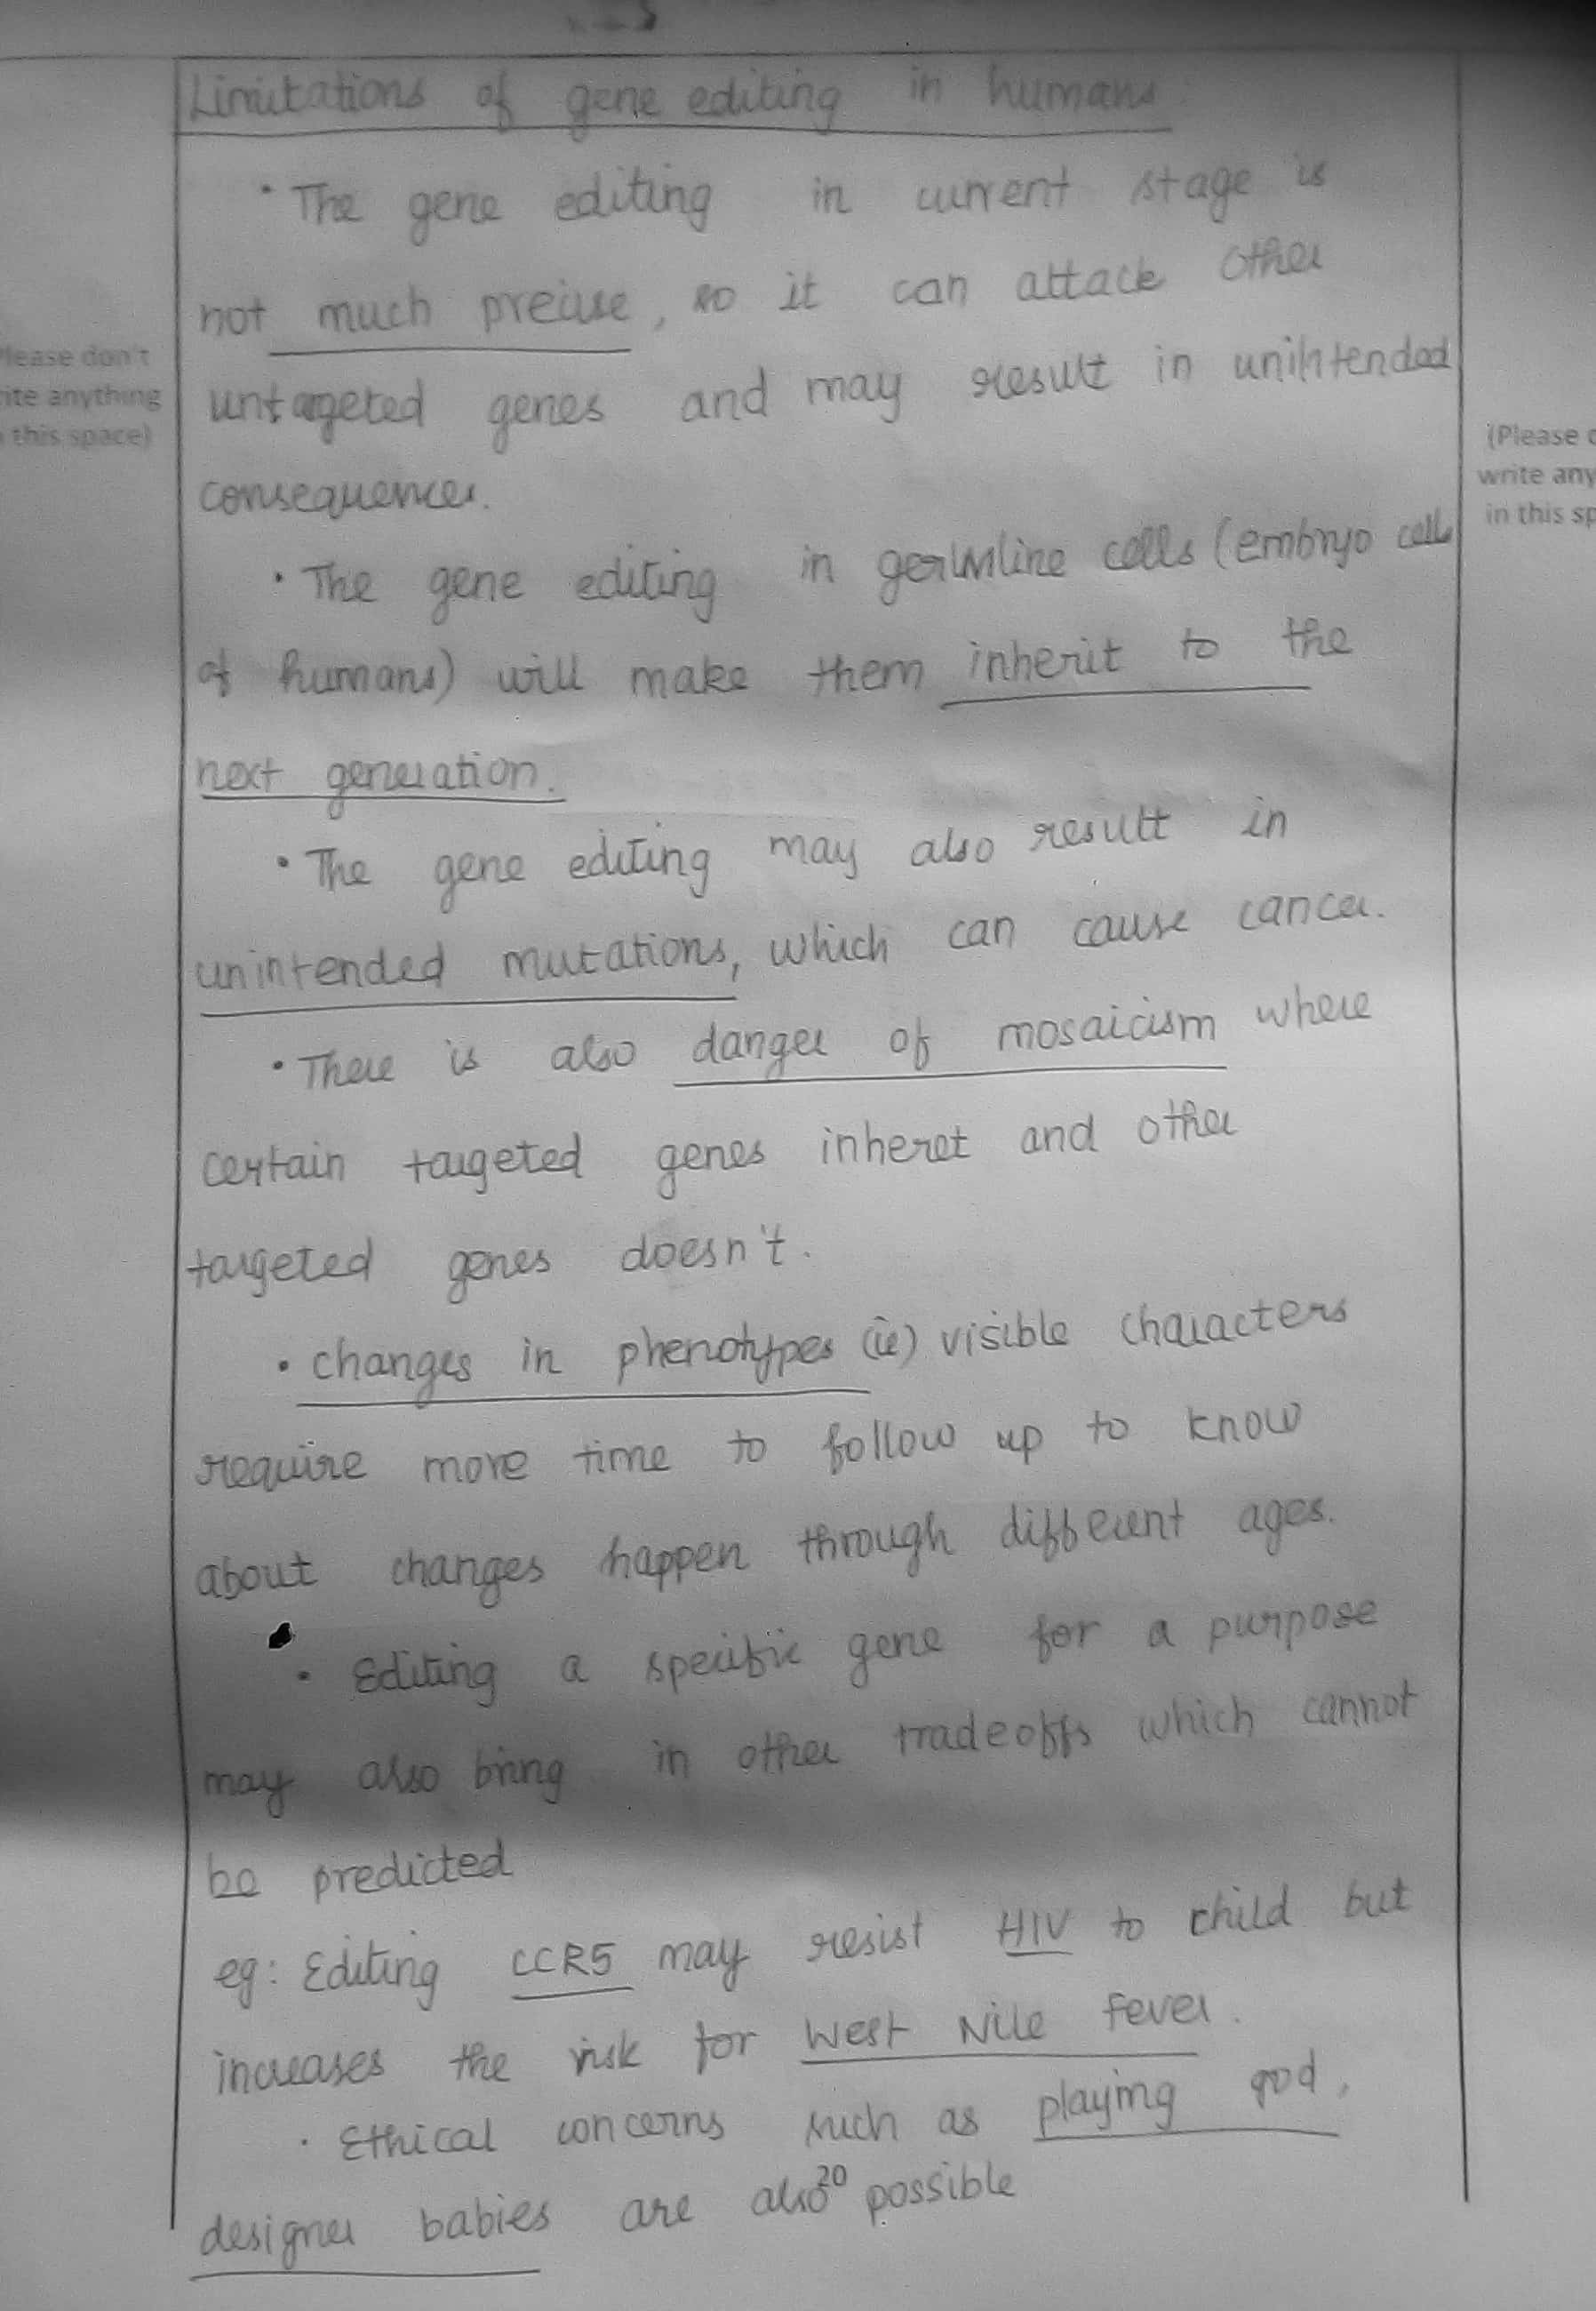 Limitations of gene editing in humans
• The gene editing in current stage is
not much precise, so it can attack other
untargeted genes and may result in unintended
consequences.
• The gene editing in germline cells (embryo cells
of humans) will make them inherit to the
next generation.
• The gene editing may also result in
unintended mutations, which can cause cancer.
• There is also danger of mosaicism where
certain targeted genes inheret and other
targeted genes doesn't.
• changes in phenotypes (ie) visible characters
require more time to follow up to know
about changes happen through different ages.
• Editing a specific gene for a purpose
may also bring in other tradeoffs which cannot
be predicted
eg: Editing CCR5 may resist HIV to child but
increases the risk for West Nile Fever.
• Ethical concerns such as playing god,
designer babies are also possible
20
Please don't
ite anything
this space)
(Please
write any
in this sp